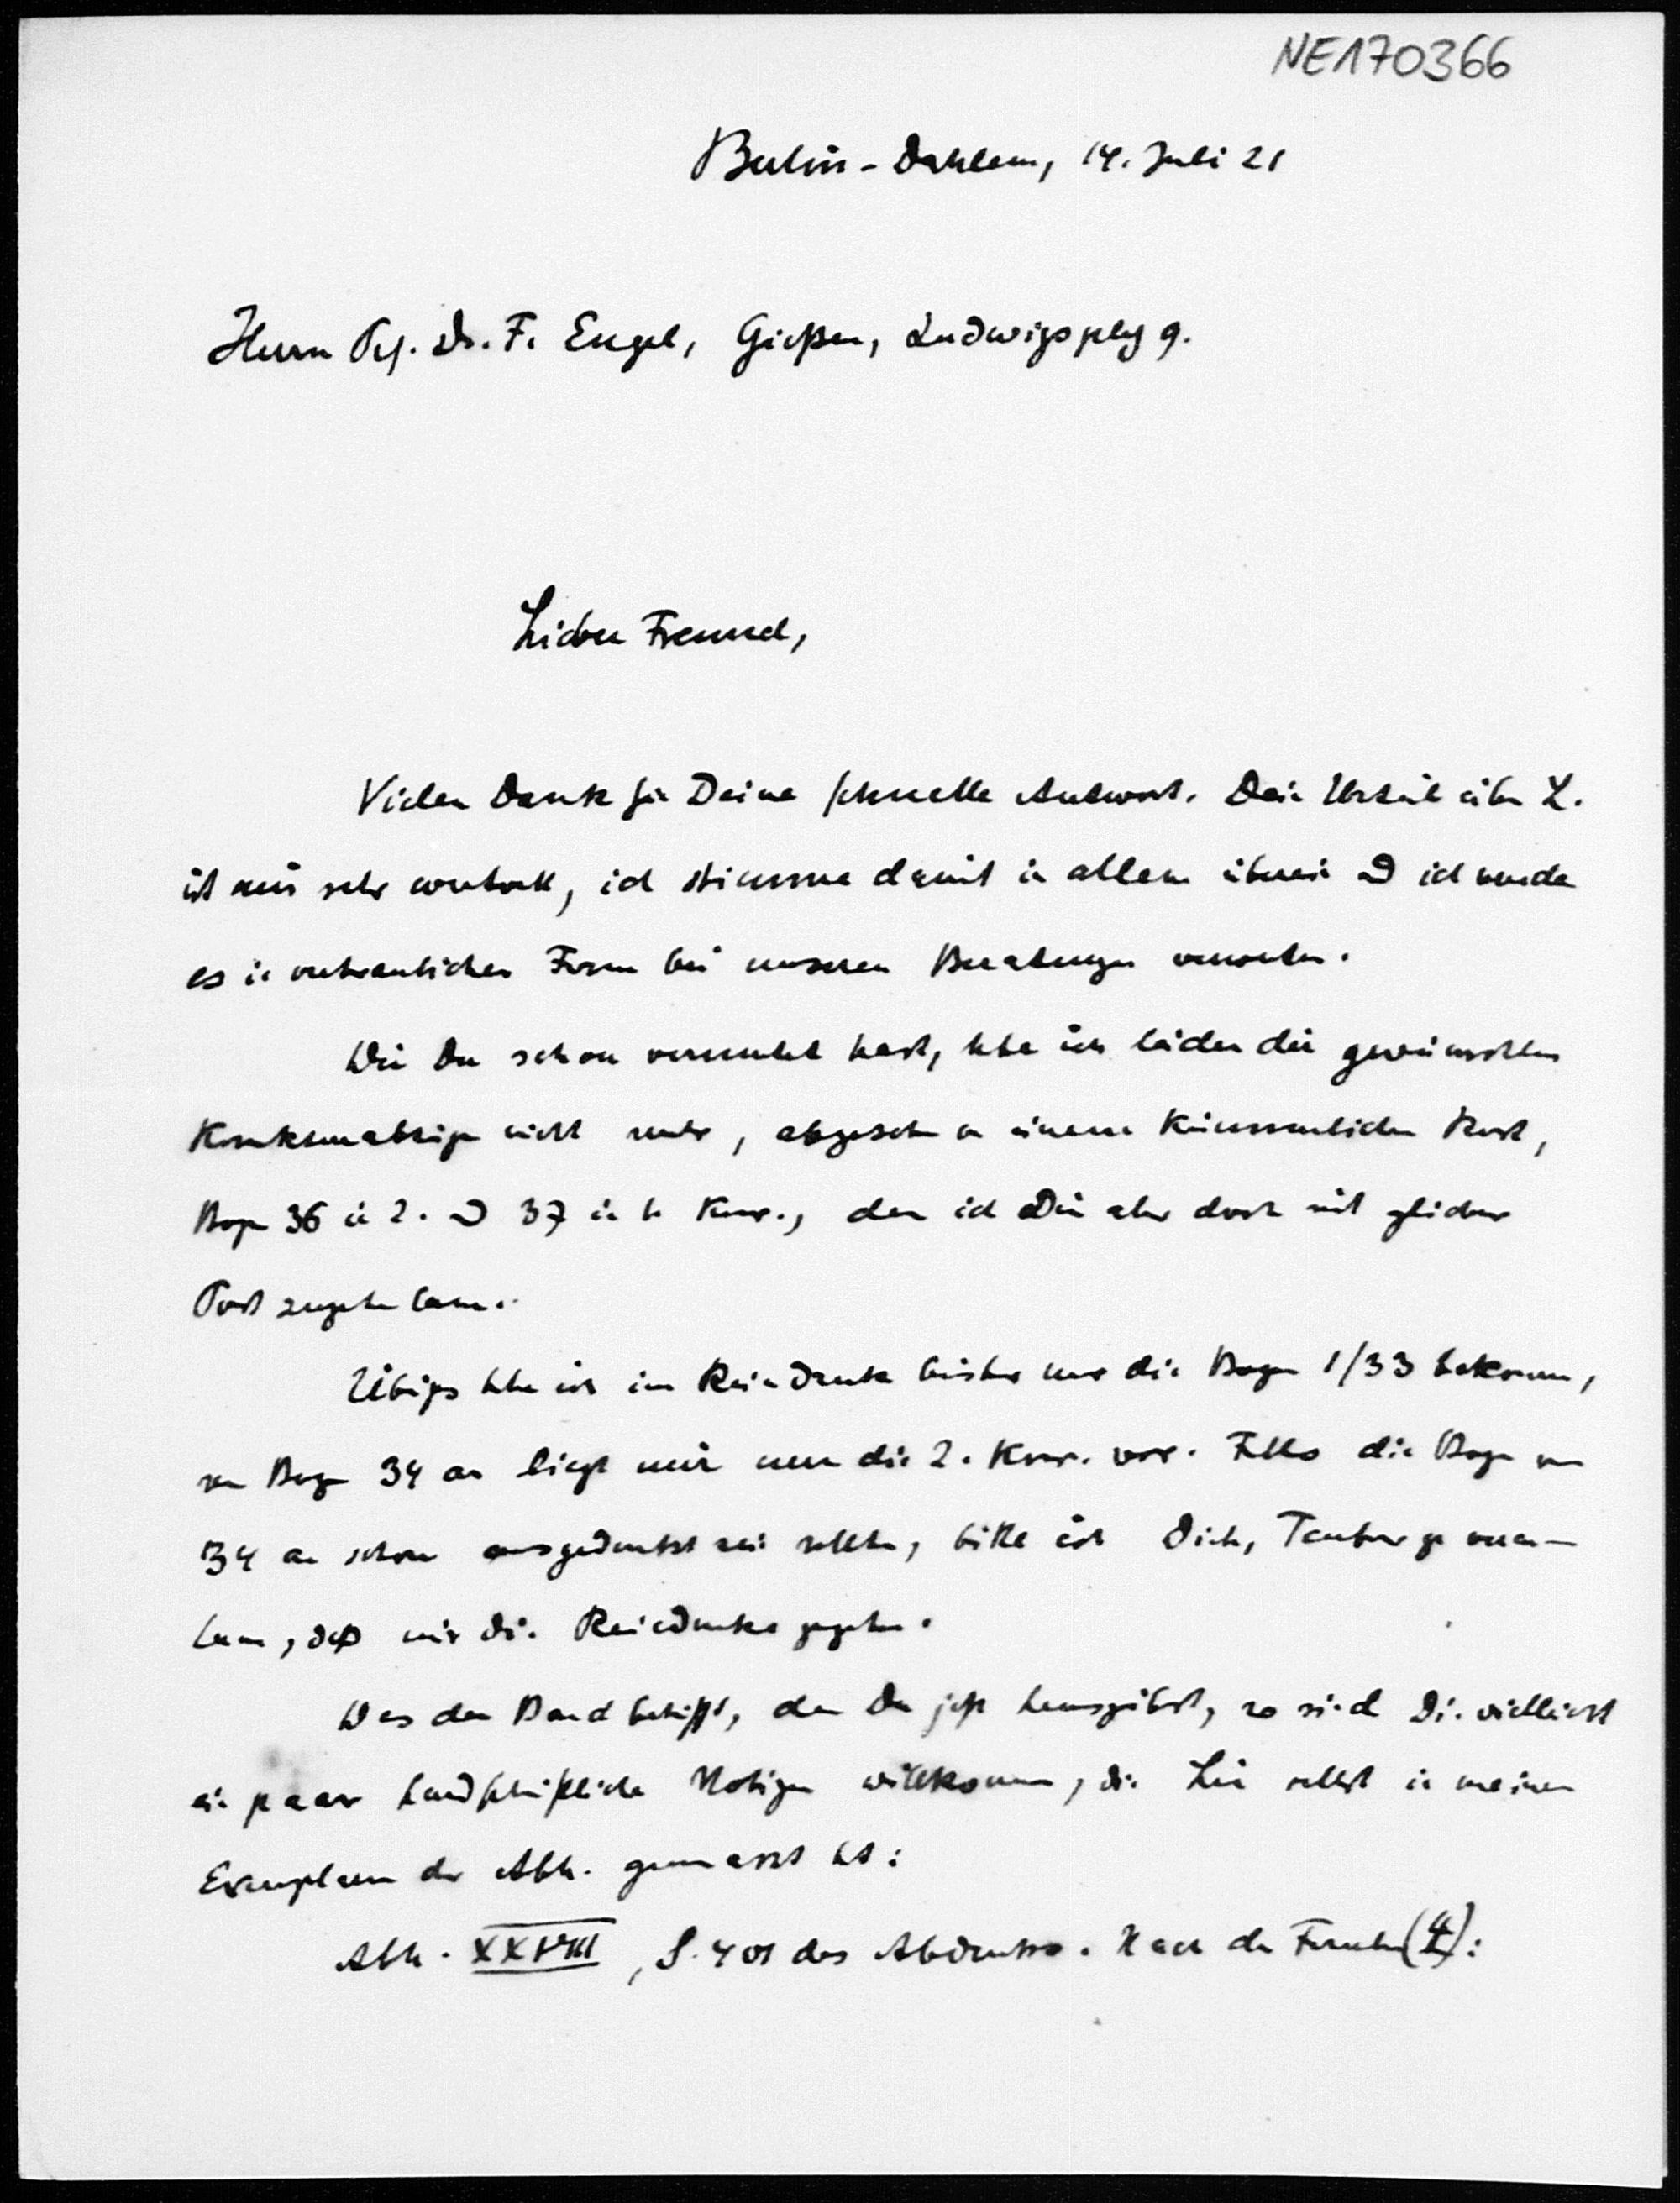 NE170366
Berlin-Dahlem, 14. Juli 21
Herrn Prof. Dr. F. Engel, Gießen, Ludwigsplatz 9.
Lieber Freund,
Vielen Dank für Deine schnelle Antwort. Dein Urteil über L.
ist mir sehr wertvoll, ich stimme damit in allem überein und ich werde
es in vertraulicher Form bei unseren Beratungen verwerten.
Wie Du schon vermutet hast, habe ich leider die gewünschten
Korrekturabzüge nicht mehr, abgesehen von einem kümmerlichen Rest,
Bogen 36 in 2. und 37 in 1. Korr., den ich Dir aber doch mit gleicher
Post zugehen lasse.
Übrigens habe ich im Reindruck bisher nur die Bogen 1/33 bekommen,
von Bogen 34 an liegt mir nur die 2. Korr. vor. Falls die Bogen von
34 an schon ausgedruckt sein sollten, bitte ich Dich, Teubner zu veran-
lassen, daß mir die Reindrucke zugehen.
Was den Band betrifft, den Du jetzt herausgibst, so sind Dir vielleicht
ein paar handschriftliche Notizen willkommen, die Lie selbst in meinen
Exemplaren der Abh. gemacht hat:
Abh. XXVIII, S. 401 des Abdrucks. Nach der Formel (4):